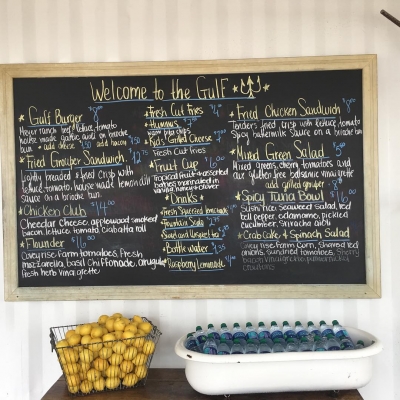 Welcome to the Gulf
Gulf Burger $8
Meyer ranch beef, lettuce, tomato
house made garlic aioli on brioche
bun + add cheese $.50 add bacon
Fried Grouper Sandwich
lightly breaded & fried crisp with
lettuce, tomato, house made lemon dill
sauce on a brioche bun
Chicken Club $14.00
Cheedar Cheese, applewood smoked
bacon, lettuce, tomato, ciabatta roll
Flounder $16.00
Covey rise Farm tomatoes, Fresh
mozzarella, basil Chiffonade, arugula
fresh herb vinaigrette
Fresh Cut Fries
Hummus
warm pita chips
Kid's Grilled Cheese
Fresh Cut Fries
Fruit Cup
Tropical fruit & assorted
Drinks
Fresh Squeezed Lemonade
Fountain Soda
Sweet and Unsweet tea
Bottle water
Raspberry Lemonade
Fried Chicken Sandwich
Tenders fried crisp with lettuce, tomato
Spicy buttermilk sauce on a brioche bun
Mixed Green Salad
Mixed greens, cherry tomatoes and
our gluten free balsamic vinaigrette
add grilled grouper
Spicy Tuna Bowl $16
Sushi rice, seaweed salad, red
bell pepper, edamame, pickled
cucumber, sriracha aioli
Crab Cake & Spinach Salad
Covey rise Farm corn, shaved red
onions, sundried tomatoes, Sherry
Bacon vinaigrette, pumpernickel
croutons